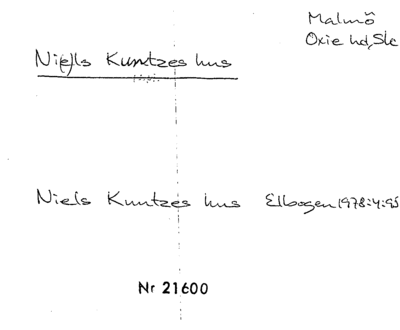 Malmö
Oxie hd, Sk
Ni(e)ls Kuntzes hus
Niels Kuntzes hus Elbogen 1978:4:95
Nr 21600